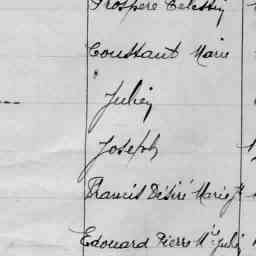 Prospère Célestin
Constant Marie
Julien
Joseph
Francis Désiré Marie Jh
Edouard Pierre Mie Julien